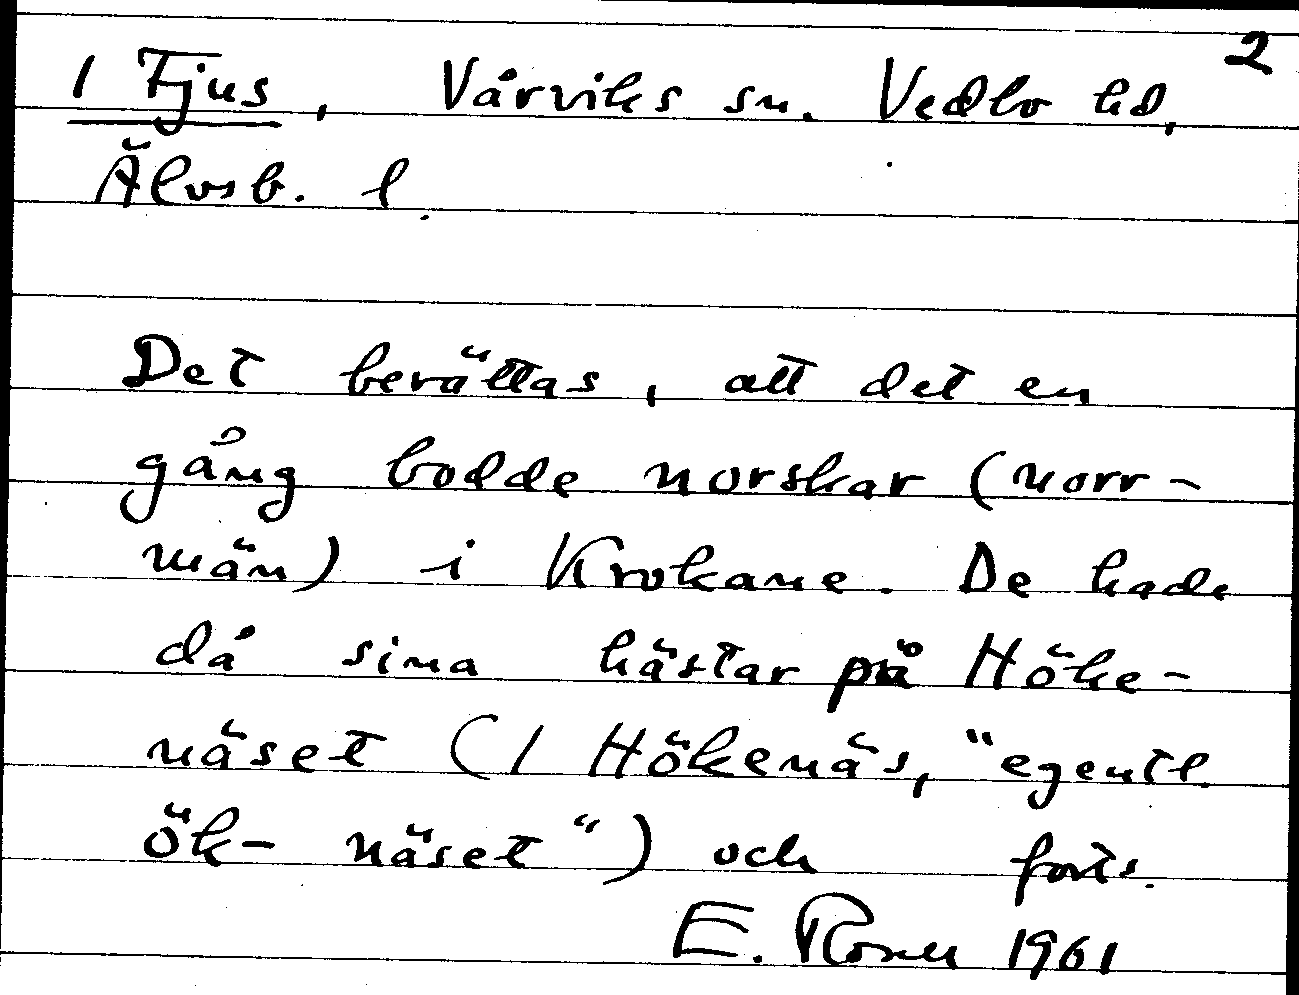 2
1 Fjus, Vårviks sn. Vedbo hd,
Älvsb. l.
Det berättas, att det en
gång bodde norskar (norr-
män) i Krokane. De hade
då sina hästar på Höke-
näset (1 Hökenäs, "egentl.
ök- näset") och forts.
E. Rosell 1961